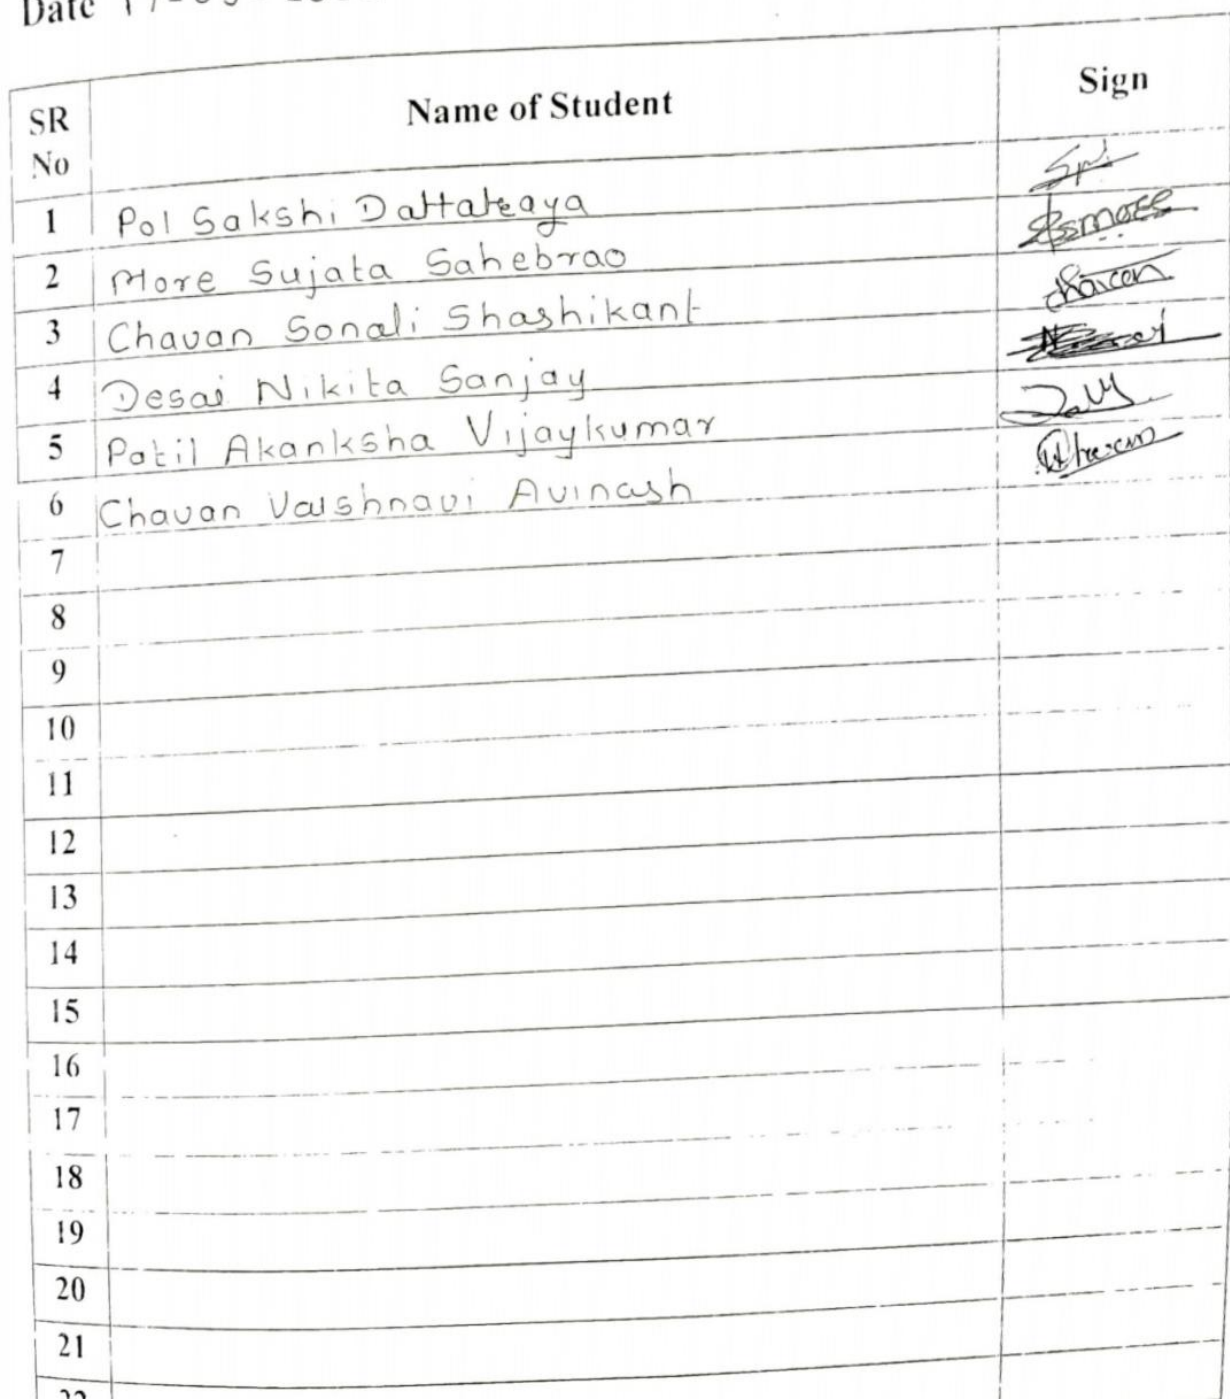 Date
SR No Name of Student Sign
1 Pol Sakshi Dattatraya
2 More Sujata Sahebrao Ssmore
3 Chavan Sonali Shashikant
4 Desai Nikita Sanjay
5 Patil Akanksha Vijaykumar
6 Chavan Vaishnavi Avinash
7
8
9
10
11
12
13
14
15
16
17
18
19
20
21
22